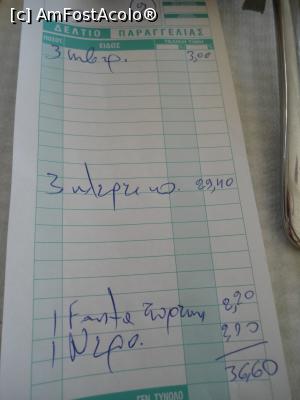 [c] AmFostAcolo®
ΔΕΛΤΙΟ ΠΑΡΑΓΓΕΛΙΑΣ
ΕΙΔΟΣ
3 κουβερ. 3,00
3 29,40
1 Fanta 2,20
1 Νερο. 2,00
36,60
ΓΕΝ. ΣΥΝΟΛΟ